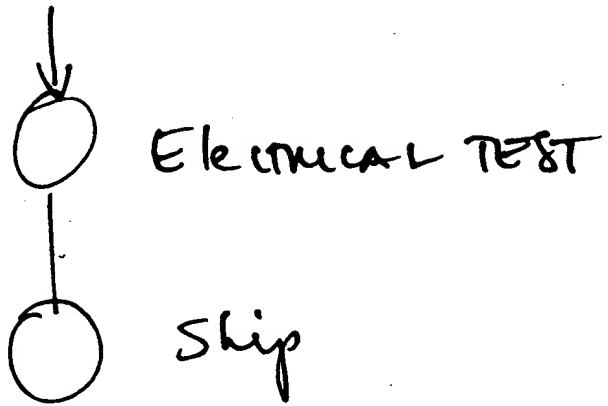 Electrical TEST
Ship